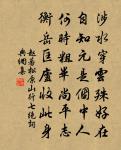 涉水穿雲殊好在
自知元是個中人
何時粗畢尚平志
衡岳匡廬收此身
趙蕃松原山行七绝詞
典網集